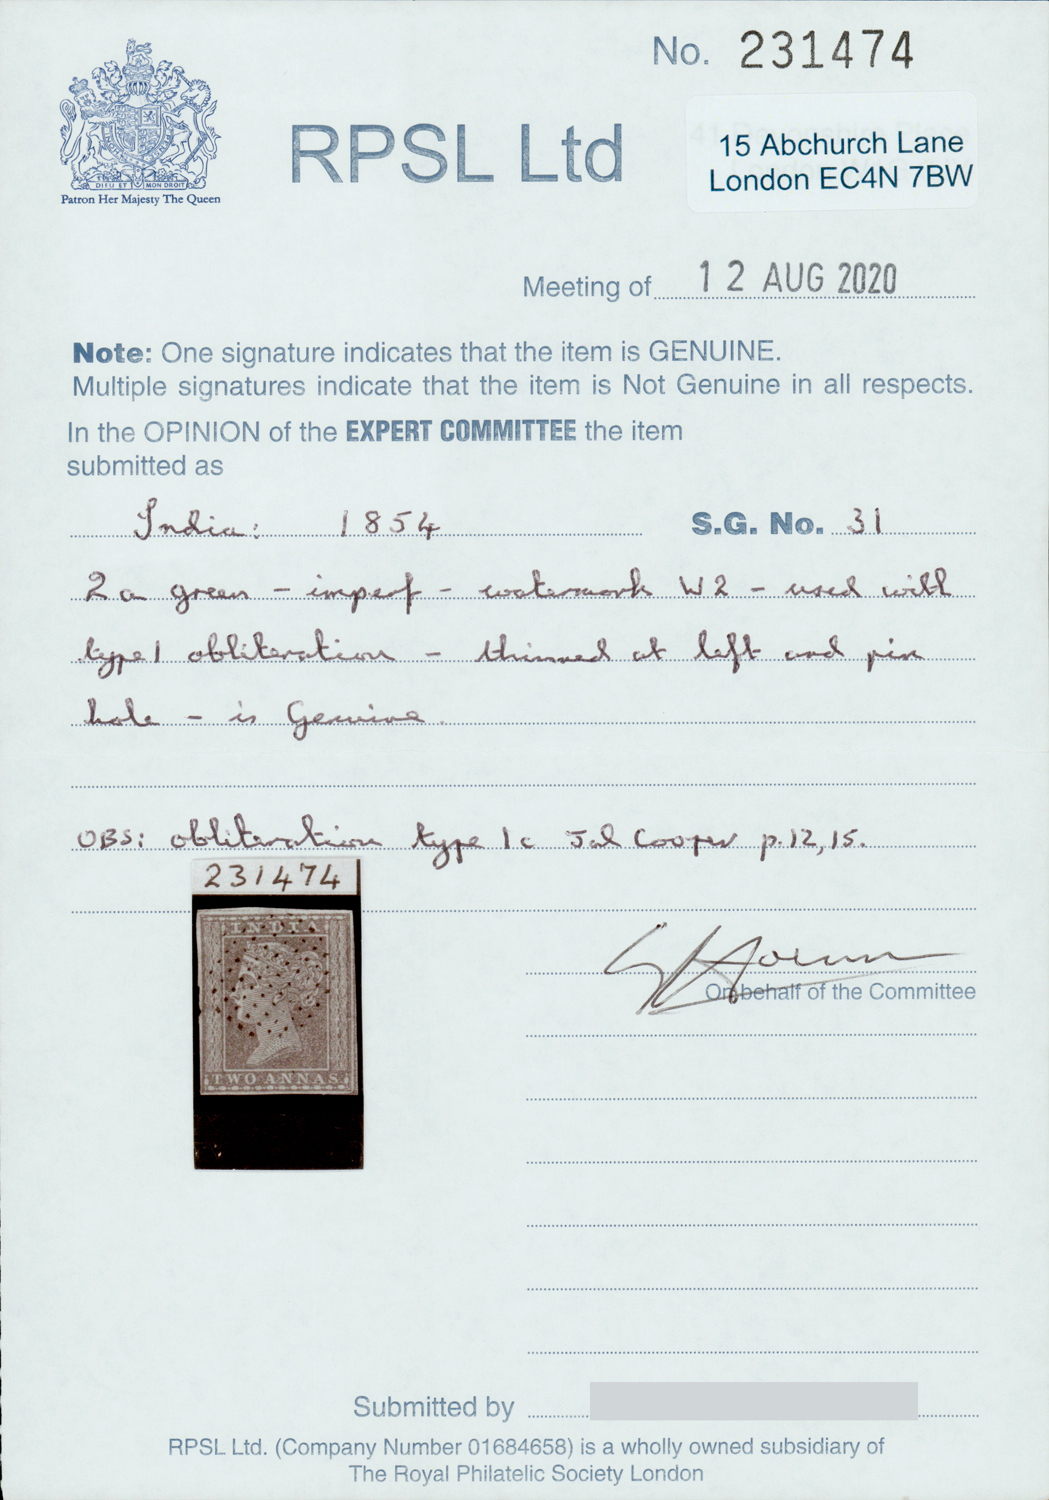 No. 231474
DIEU ET MON DROIT
Patron Her Majesty The Queen
RPSL Ltd
15 Abchurch Lane
London EC4N 7BW
Meeting of 12 AUG 2020
Note: One signature indicates that the item is GENUINE.
Multiple signatures indicate that the item is Not Genuine in all respects.
In the OPINION of the EXPERT COMMITTEE the item
submitted as
India: 1854 S.G. No. 31
2a green - imperf - watermark W2 - used with
type 1 obliteration - thinned at left and pin
hole - is Genuine.
OBS: obliteration type 1c Jal Cooper p.12,15.
231474
INDIA
TWO ANNAS
On behalf of the Committee
Submitted by
RPSL Ltd. (Company Number 01684658) is a wholly owned subsidiary of
The Royal Philatelic Society London